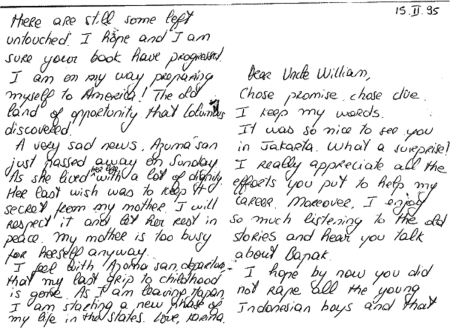 15. II. 95
Dear Uncle William,
Chose promise. chose due.
I keep my words.
It was so nice to see you
in Jakarta. What a surprise!
I really appreciate all the
efforts you put to help my
career. Moreover, I enjoy
so much listening to the old
stories and hear you talk
about Bapak.
I hope by now you did
not rape all the young
Indonesian boys and that
there are still some left
untouched. I hope and I am
sure your book have progressed.
I am on my way preparing
myself to America! The old
land of opportunity that Columbus
discovered.
A very sad news. Azuma san
just passed away on Sunday
As she lived her life with a lot of dignity
Her last wish was to keep it
secret from my mother. I will
respect it and let her rest in
peace. My mother is too busy
for herself anyway.
I feel with Azuma san departure
that my last grip to childhood
is gone. As I am leaving Japan
I am starting a new phase of
my life in the States. Love, Karina.